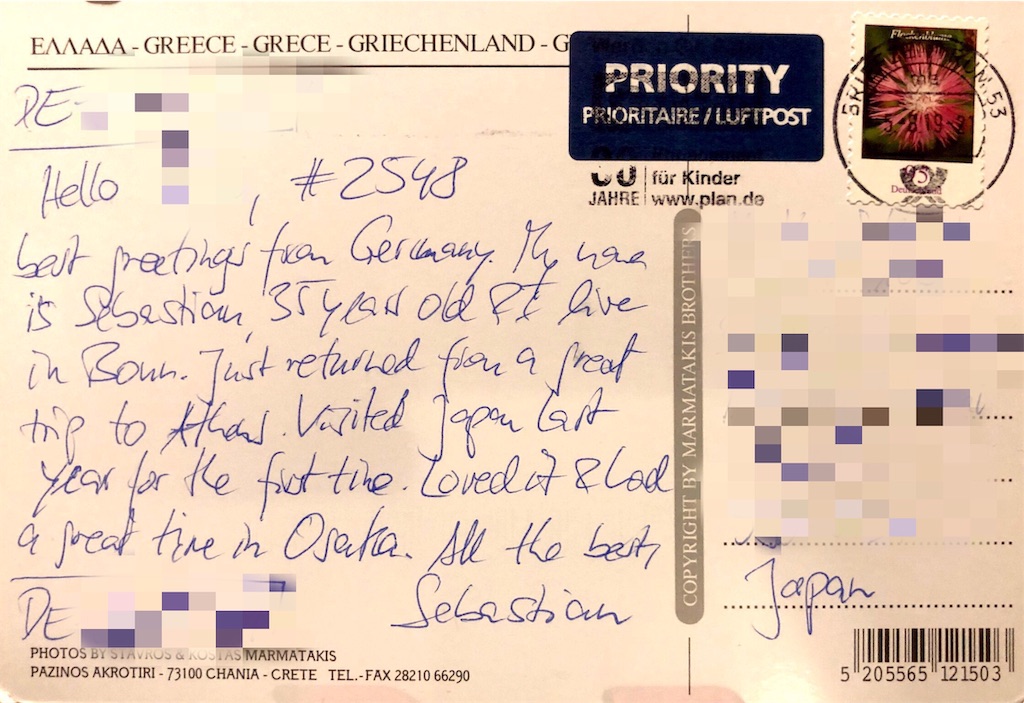 ΕΛΛΑΔΑ - GREECE - GRECE - GRIECHENLAND - G
PRIORITY
PRIORITAIRE / LUFTPOST
JAHRE
für Kinder
www.plan.de
53
Flockenblume
DE-
Hello , #2548
best greetings from Germany. My name
is Sebastian, 35 years old & I live
in Bonn. Just returned from a great
trip to Athens. Visited Japan last
year for the first time. Loved it & had
a great time in Osaka. All the best,
Sebastian
DE
PHOTOS BY STAVROS & KOSTAS MARMATAKIS
PAZINOS AKROTIRI - 73100 CHANIA - CRETE TEL.-FAX 28210 66290
COPYRIGHT BY MARMATAKIS BROTHERS
Japan
5 205565 121503